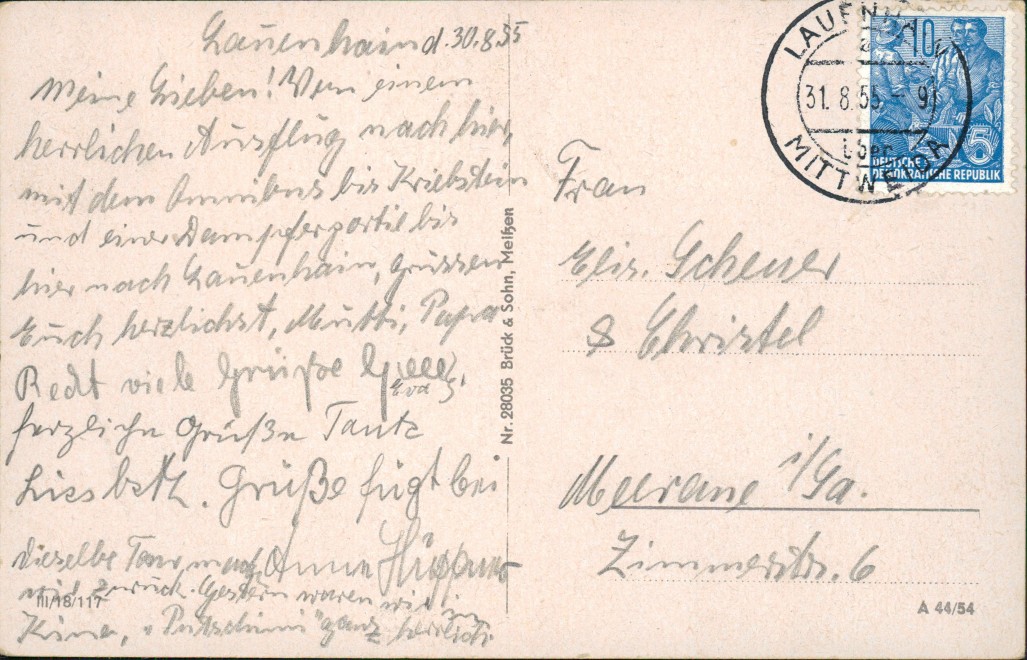 Lauenhain d. 30.8.55
Meine Lieben! Von einem
herrlichen Ausflug nach hier,
mit dem Omnibus bis Kriebstein
und einer Dampferpartie bis
hier nach Lauenhain, grüssen
Euch herzlichst, Mutti, Papa
Recht viele Grüße
Eva
herzliche Grüße Tante
Liesbeth. Grüße fügt bei
dieselbe Tour, Anna
zurück. Gestern waren wir im
Kino, "Putschini" ganz herrlich
III/18/117
Nr. 28035 Brück & Sohn, Meißen
LAUENHAIN
31.8.55.-9
über
MITTWEIDA
10
5
DEUTSCHE
DEMOKRATISCHE REPUBLIK
Frau
Elis. Scheuer
& Christel
Meerane i/Sa.
Zimmerstr. 6
A 44/54